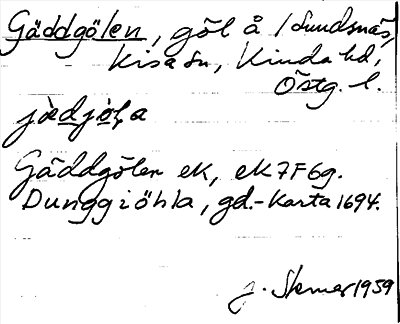 Gäddgölen, göl å / Sundsnäs,
Kisa sn, Kinda hd,
Östg. l.
jædjöla
Gäddgölen ek, ek 7F6g.
Dunggiöhla, gd.-Karta 1694.
J. 1959